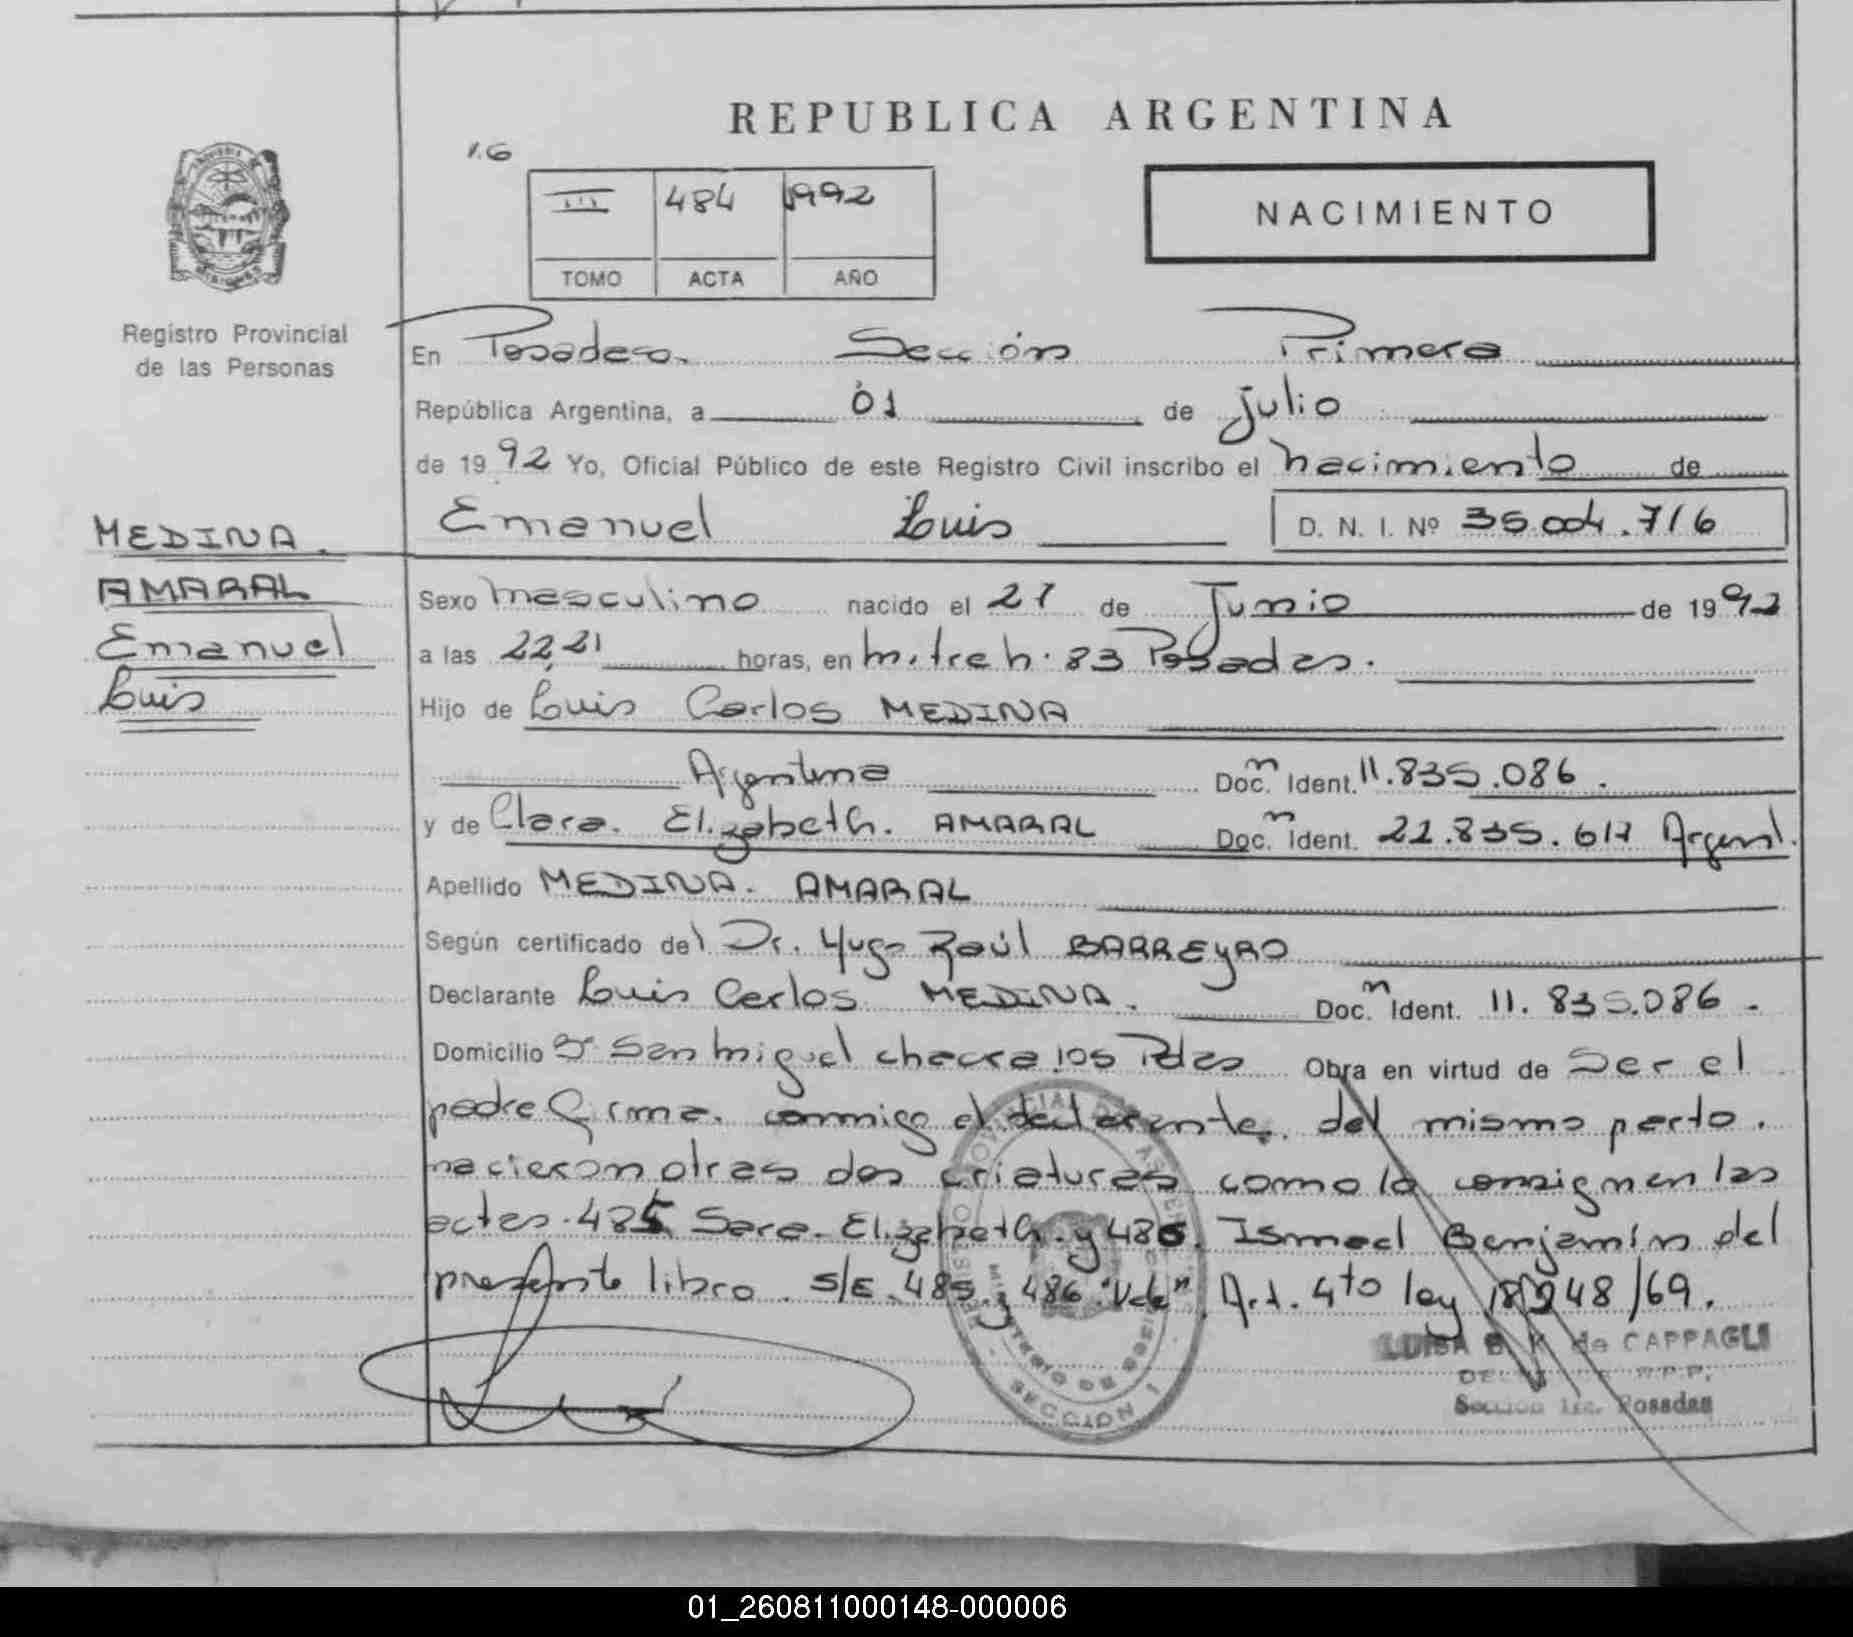 REPUBLICA ARGENTINA
1.6
III 484 1992
TOMO ACTA AÑO
NACIMIENTO
Registro Provincial
de las Personas
En Posadas. Sección Primera
República Argentina, a 01 de julio
de 1992 Yo, Oficial Público de este Registro Civil inscribo el nacimiento de
Emanuel Luis D. N. I. Nº 35.004.716
MEDINA.
AMARAL
Emanuel
Luis
Sexo masculino nacido el 21 de Junio de 1992
a las 22,21 horas, en Mitre h. 83 Posadas.
Hijo de Luis Carlos MEDINA
Argentina Doc. Ident. 11.835.086.
y de Clara. Elizabeth. AMARAL Doc. Ident. 22.835.617 Argent.
Apellido MEDINA. AMARAL
Según certificado del Dr. Hugo Raúl BARREYRO
Declarante Luis Carlos MEDINA. Doc. Ident. 11.835.086.
Domicilio San Miguel chacra 105 Pdas Obra en virtud de Ser el
padre Firma. conmigo el declarante. del mismo parto.
nacieron otras dos criaturas como lo consignan las
actas. 485 Sara. Elizabeth. y 486. Ismael Benjamín del
presente libro. S/E. 485 y 486 "Vale". Art. 4to ley 18248/69.
LUISA B. K. de CAPPAGLI
R.P.P.
Sección 1ra. Posadas
SECCION 1
01_260811000148-000006